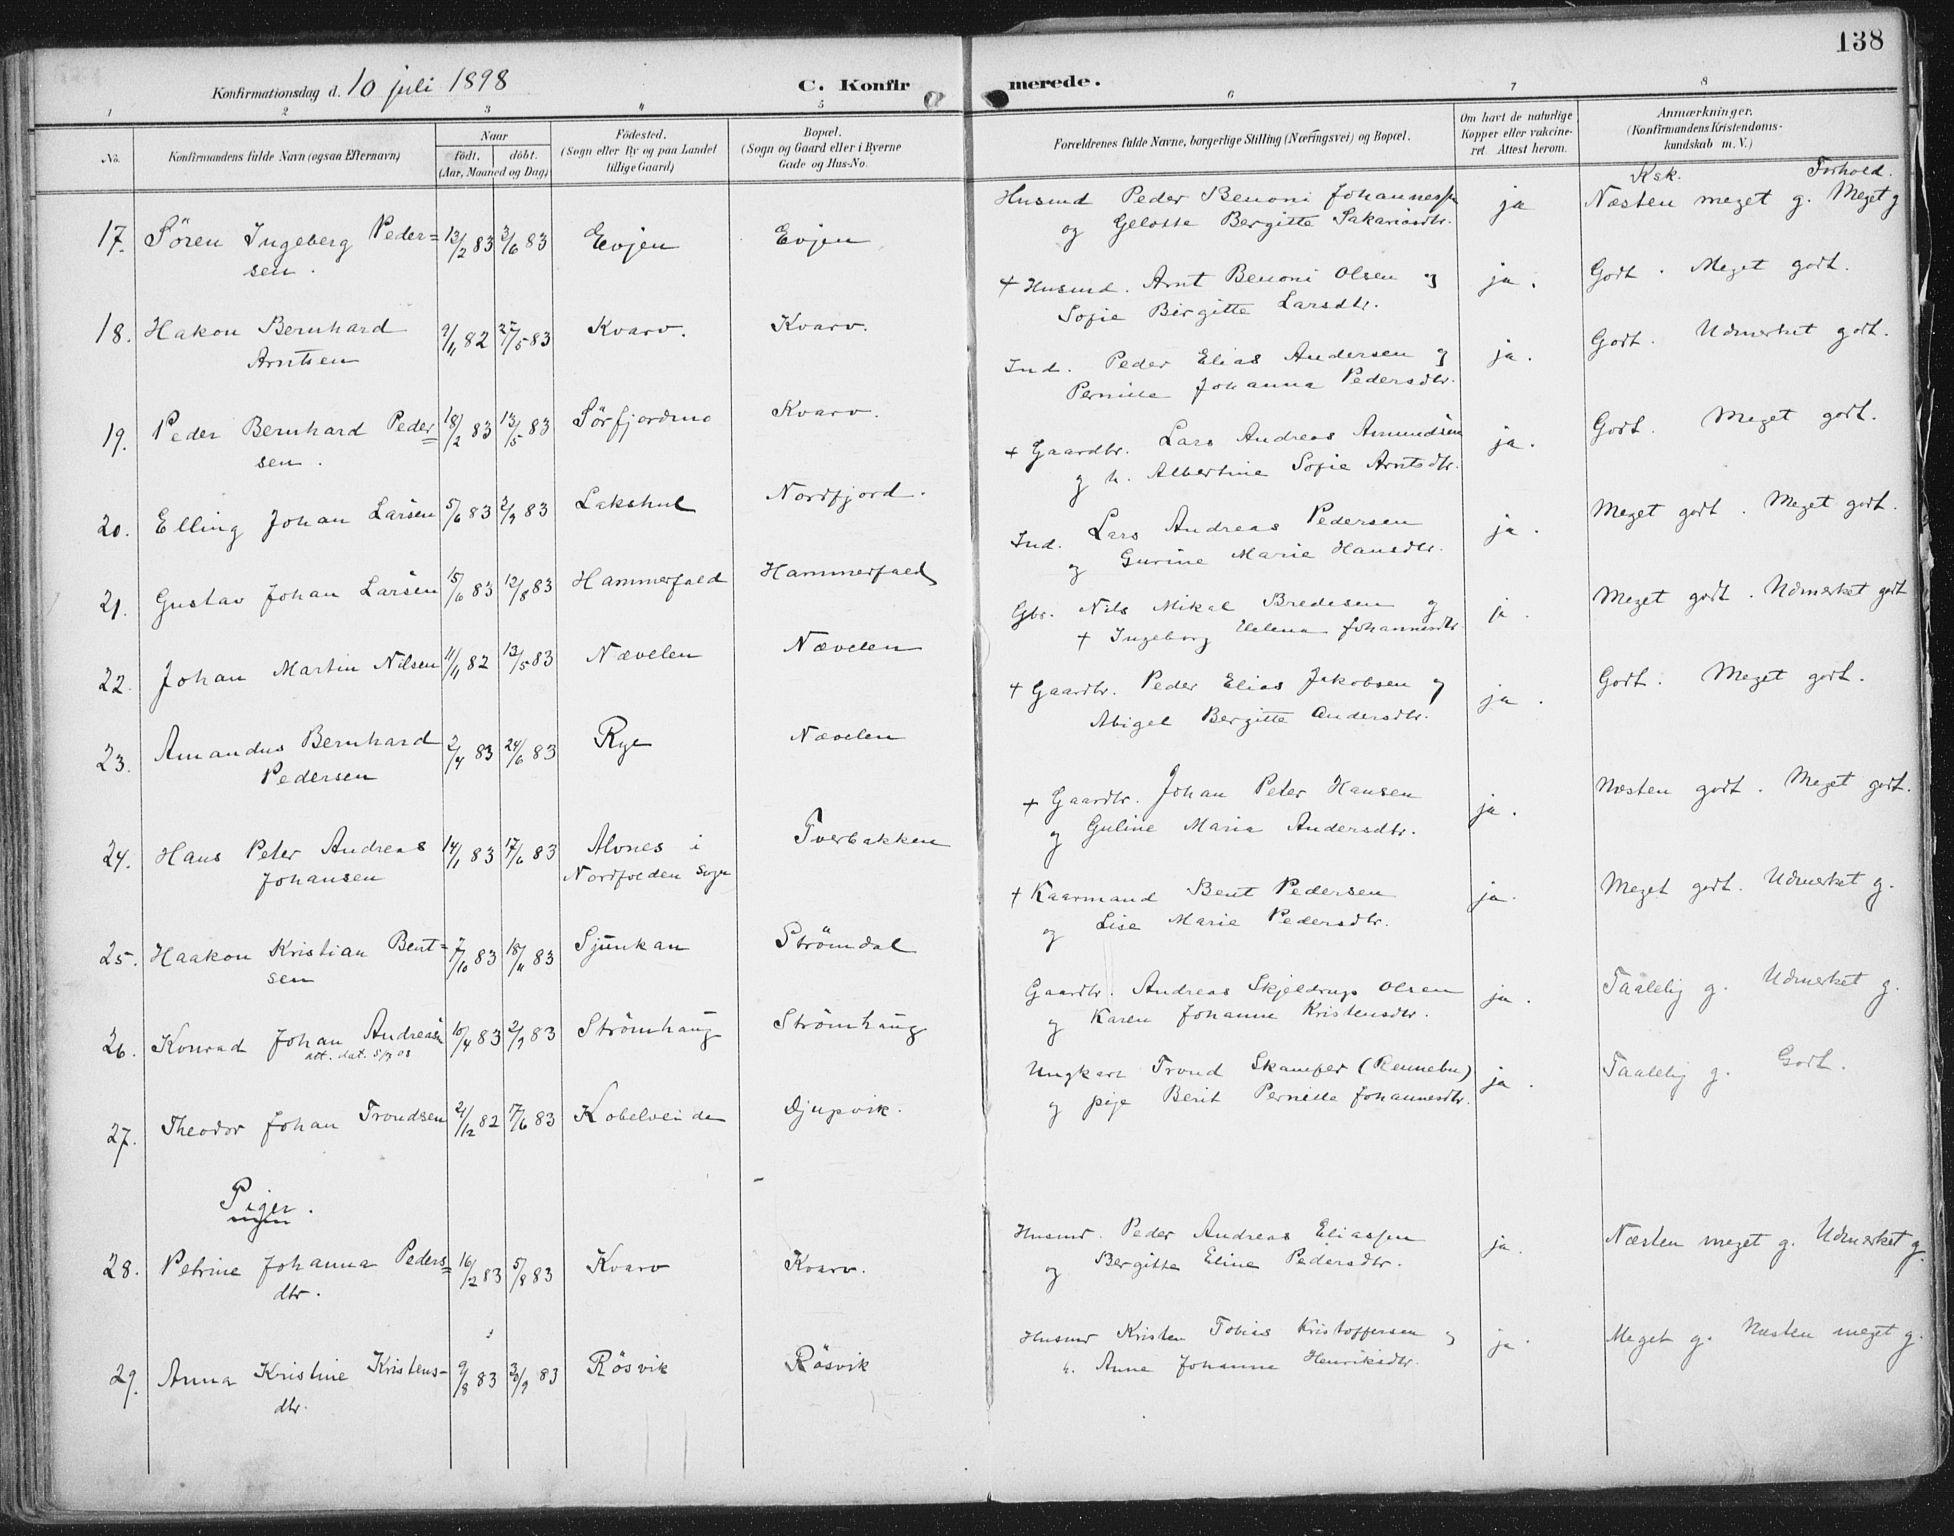 138
Konfirmationsdag d. 10 juli 1898
C. Konfir
merede.
1 2 3 4 5 6 7 8
No.
Konfirmandens fulde Navn (ogsaa Efternavn)
Naar
født. døbt.
(Aar, Maaned og Dag)
Fødested.
(Sogn eller By og paa Landet
tillige Gaard)
Bopæl.
(Sogn og Gaard eller i Byerne
Gade og Hus-No.
Forældrenes fulde Navne, borgerlige Stilling (Næringsvei) og Bopæl.
Om havt de naturlige
Kopper eller vakcine-
ret. Attest herom.
Anmærkninger.
(Konfirmandens Kristendoms-
kundskab m. V.)
Ksk. Forhold.
17. Søren Ingeberg Peder=
sen.
13/2 83 3/6 83 Evjen Evjen
Husmd Peder Benoni Johannessen
og Gelotte Bergitte Sakariasdtr.
ja Næsten meget g. Meget g
18. Hakon Bernhard
Arntsen
9/11 82 27/5 83 Kvarv. Kvarv.
+ Husmd. Arnt Benoni Olsen og
Sofie Birgitte Larsdtr.
ja. Godt. Meget godt.
19. Peder Bernhard Peder=
sen.
18/2 83 13/5 83 Sørfjordmo Kvarv.
Ind. Peder Elias Andersen og
Pernille Johanna Pedersdtr.
ja. Godt. Udmerket godt.
20. Elling Johan Larsen 5/6 83 2/9 83 Lakshul Nordfjord.
+ Gaardbr. Lars Andreas Amundsen
og h. Albertine Sofie Arntsdtr.
ja. Godt. Meget godt.
21. Gustav Johan Larsen 15/6 83 12/8 83 Hammerfald Hammerfald
Ind. Lars Andreas Pedersen
og Gurine Marie Hansdtr.
ja. Meget godt. Meget godt.
22. Johan Martin Nilsen 11/11 82 13/5 83 Nævelen Nævelen
Gbr. Nils Mikal Bredesen og
+ Ingeborg Helena Johannesdtr.
ja. Meget godt. Udmerket godt
23. Amandus Bernhard
Pedersen
2/4 83 24/6 83 Rye Nævelen
+ Gaardbr. Peder Elias Jakobsen og
Abigel Bergitte Andersdtr.
ja. Godt. Meget godt.
24. Hans Peter Andreas
Johansen
14/1 83 17/6 83 Alvnes i
Nordfolden Sogn
Tverbakken
+ Gaardbr. Johan Peter Hansen
og Guline Maria Andersdtr.
ja. Næsten godt. Meget godt.
25. Haakon Kristian Bent=
sen
7/10 83 18/11 83 Sjunkan Strömdal
+ Kaarmand Bent Pedersen
og Lise Marie Pedersdtr.
ja. Meget godt. Udmerket g.
26. Konrad Johan Andreasn
att. dat. 5/3 08
10/4 83 2/9 83 Strömhaug Strömhaug
Gaardbr. Andreas Skjeldrup Olsen
og Karen Johanne Kristensdtr.
ja. Taalelig g. Udmerket g.
27. Theodor Johan Trondsen 21/12 82 17/6 83 Kobelveide Djupvik.
Ungkarl Trond Skamfer (Rennebu)
og pige Berit Pernille Johannesdtr.
ja. Taalelig g. Godt.
Piger.
28. Petrine Johanna Peders=
dtr.
16/2 83 5/8 83 Kvarv Kvarv.
Husmd. Peder Andreas Eliassen
og Bergitte Eline Pedersdtr.
ja. Næsten meget g. Udmerket g.
29. Anna Kristine Kristens-
dtr.
9/8 83 30/9 83 Røsvik Røsvik
Husmd Kristen Tobias Kristoffersen og
h. Anne Johanne Henriksdtr.
ja. Meget g. Næsten meget g.